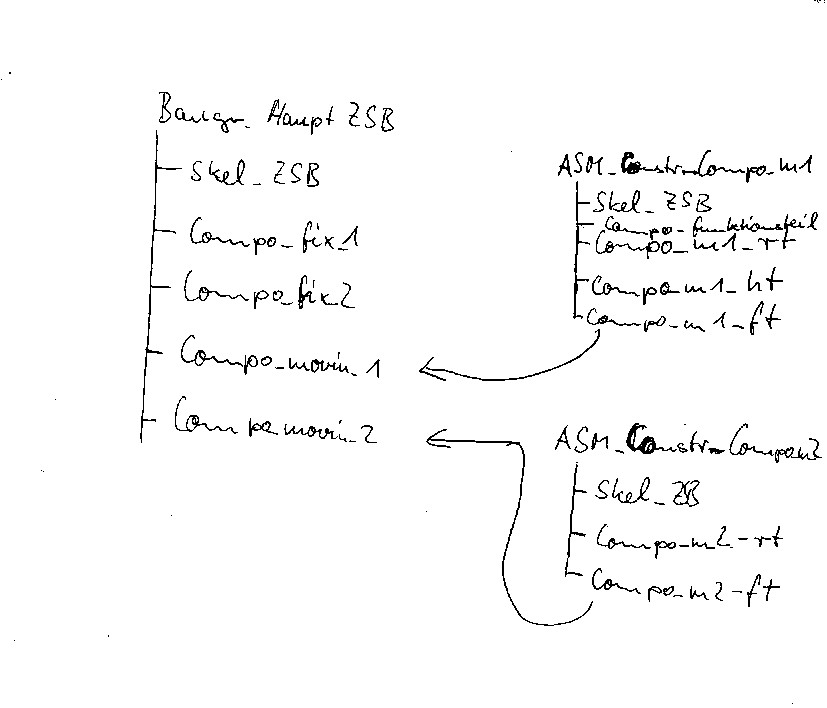 Baugr_Haupt ZSB
Skel_ZSB
Compo_fix_1
Compo_fix2
Compo_movin_1
Compo_movin_2
ASM_Constr_Compo_m1
Skel_ZSB
Compo_funktionsteil
Compo_m1_rt
Compo_m1_ht
Compo_m1_ft
ASM_Constr_Compom2
Skel_ZSB
Compo_m2-rt
Compo_m2-ft